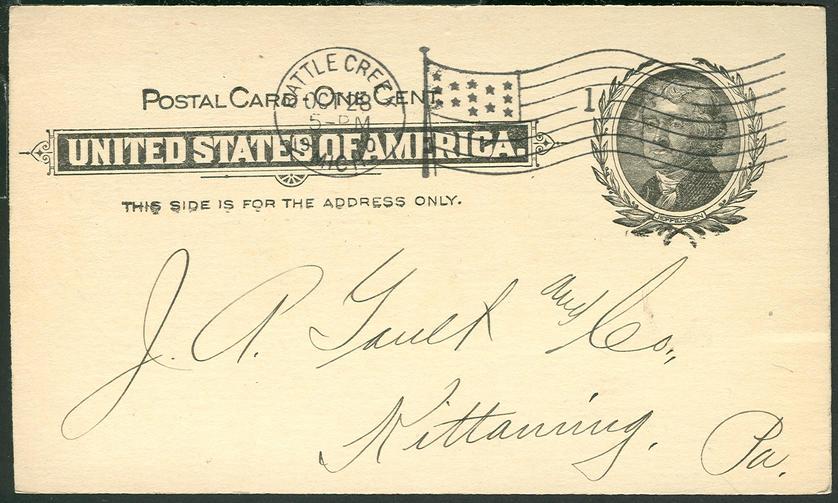 POSTAL CARD - ONE CENT.
UNITED STATES OF AMERICA.
THIS SIDE IS FOR THE ADDRESS ONLY.
BATTLE CREEK
OCT 28
5-PM
MICH.
1
JEFFERSON
J. A. Gault and Co.,
Kittanning,
Pa.